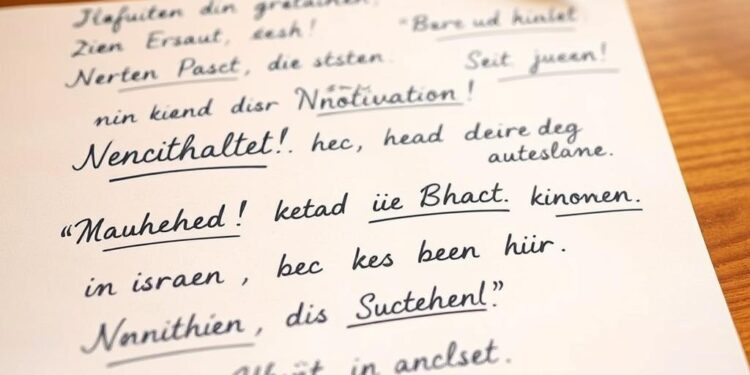 din
Zien Ersaut, eesh! "Bere ud hinlet
Nerten Pasct, die ststen. Seit jueen!
nin kiend disr Nnotivation!
Nencithaltet!. hec, head deire deg
auteslane.
"Mauhehed! ketad üe Bhact. kinonen.
in israen, bec kes been hüir.
Nnnithien, dis Suctehenl."
in anclset.